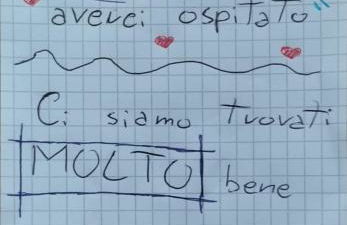 averci ospitato"
Ci siamo trovati
MOLTO bene